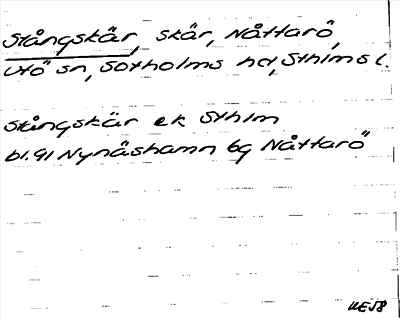 Stångskär, skär, Nåttarö,
Utö sn, Sotholms hd, Sthlms l.
Stångskär ek Sthlm
bl. 91 Nynäshamn bg Nåttarö
UEJ8